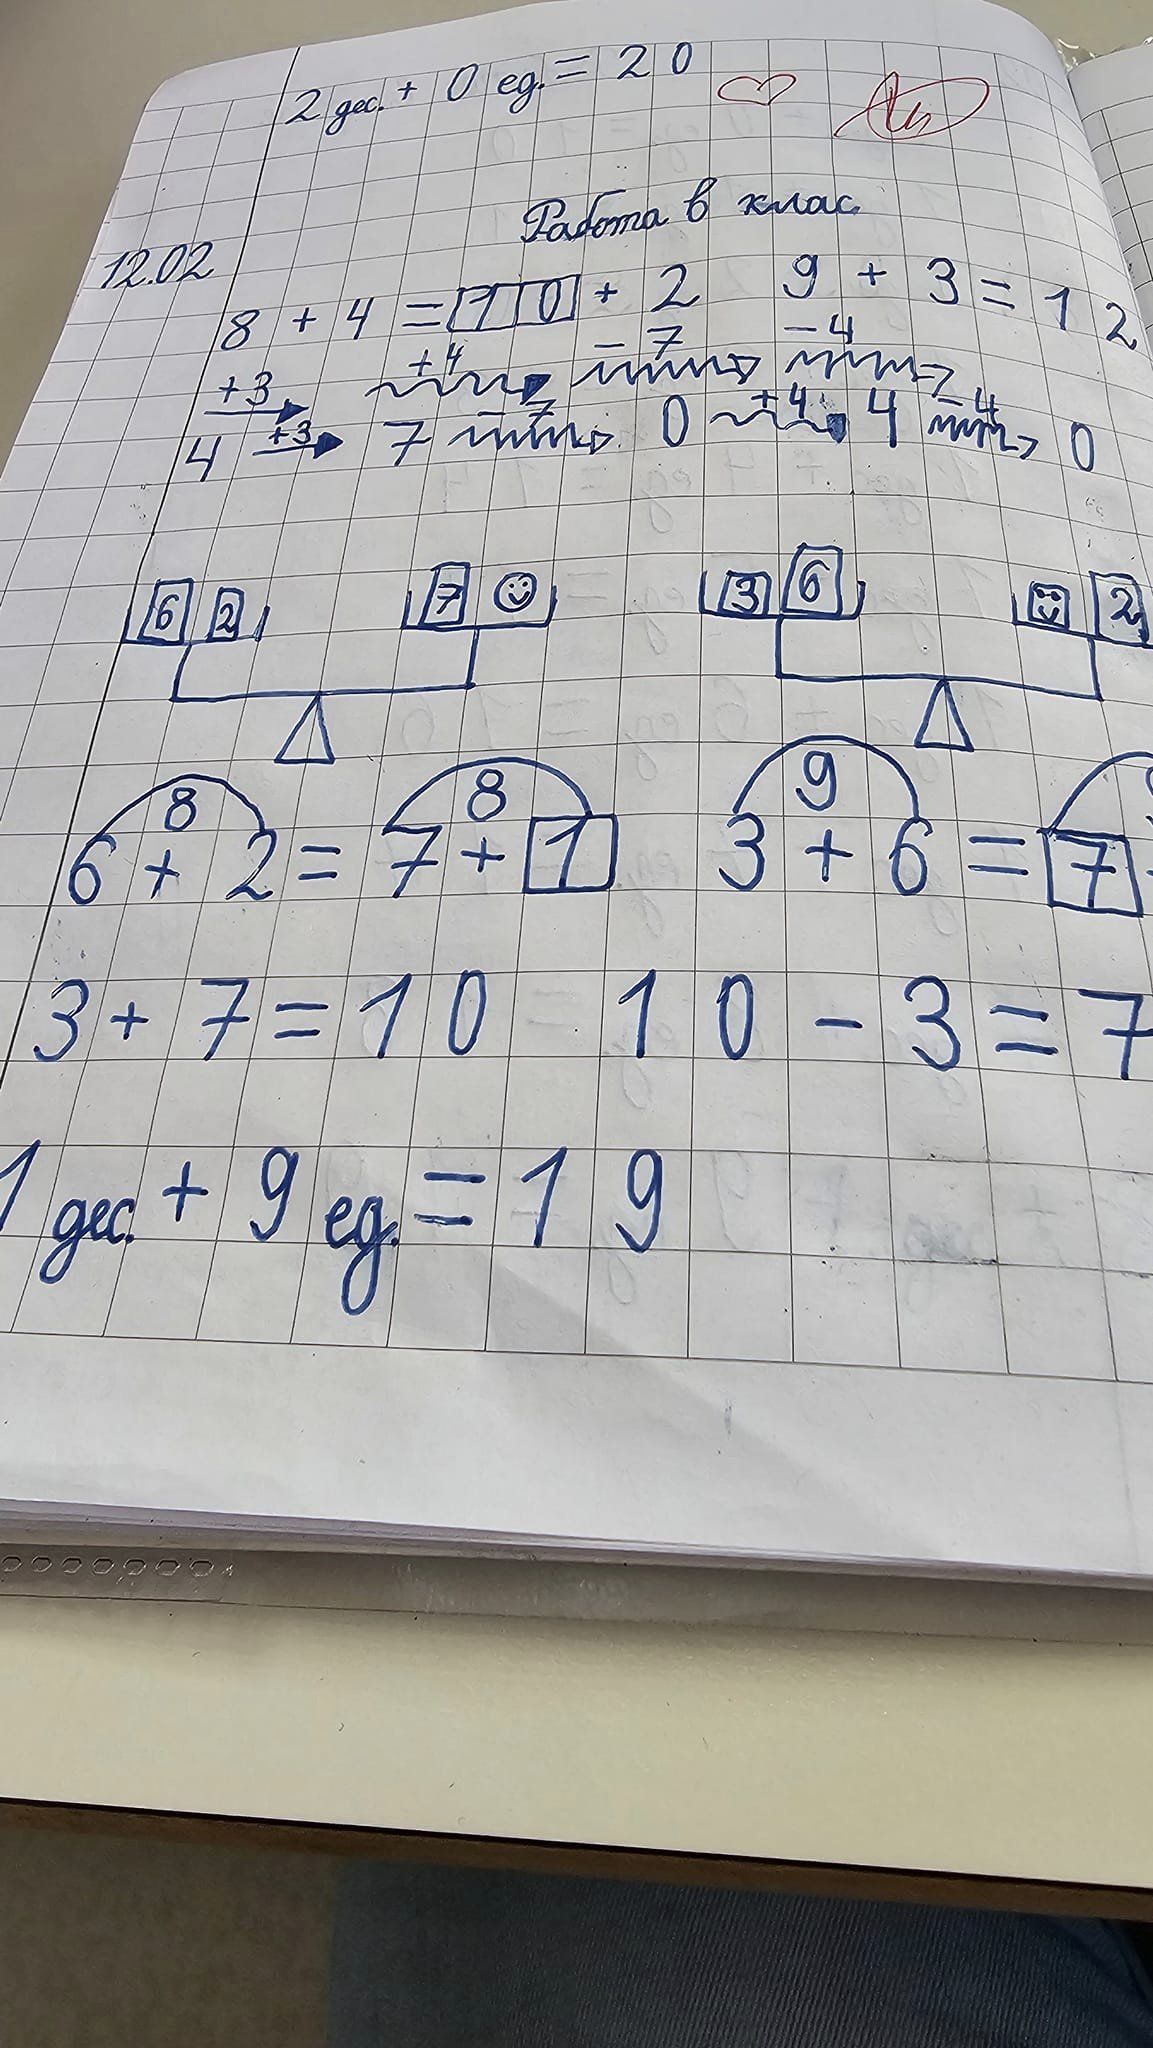 2 дес. + 0 ед. = 20
Работа в клас
12.02
8 + 4 = 10 + 2 9 + 3 = 12
+3 +4 -7 -4
4 +3 7 -7 0 +4 4 -4 0
6 2 7 3 6 2
8 8 9
6 + 2 = 7 + 1 3 + 6 = 7
3 + 7 = 10 10 - 3 = 7
1 дес. + 9 ед. = 19